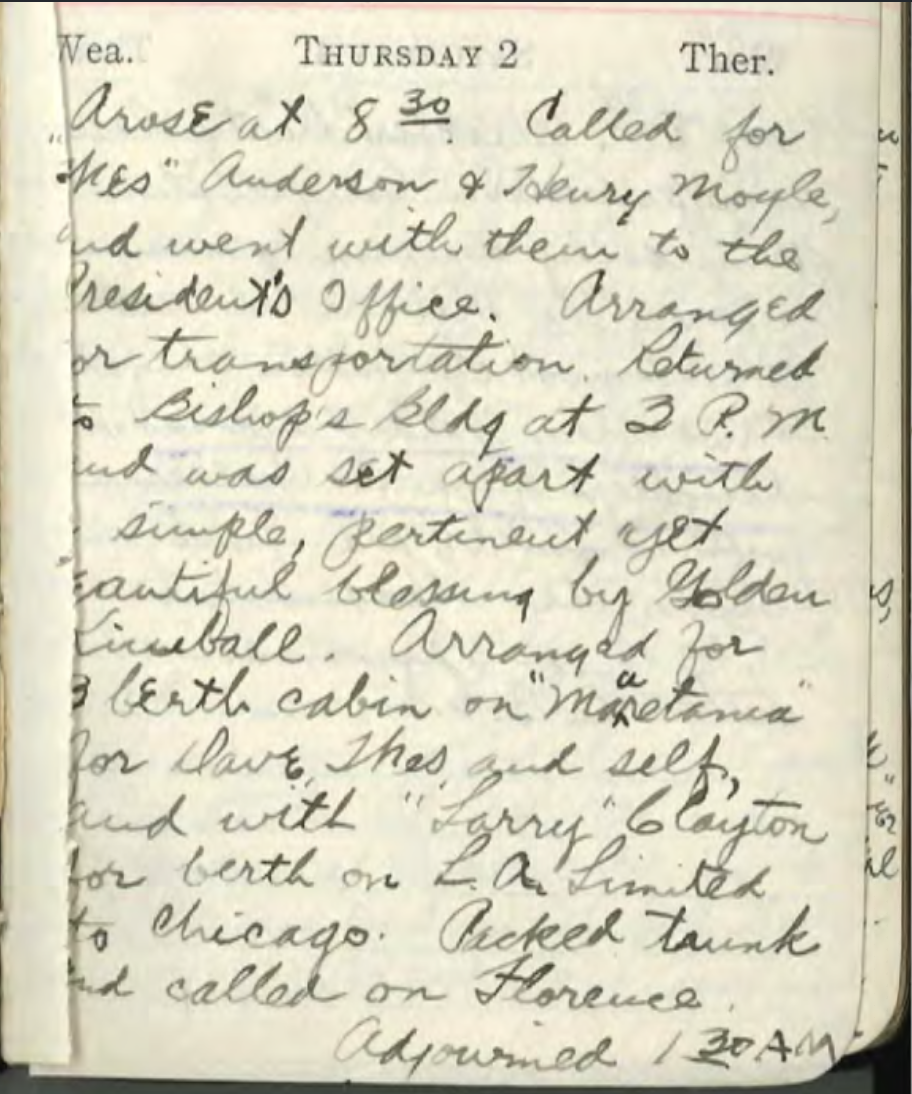 Wea. THURSDAY 2 Ther.
Arose at 8 30. Called for
"Thes" Anderson & Henry Moyle,
and went with them to the
President's Office. Arranged
for transportation. Returned
to Bishop's Bldg at 3 P. M.
and was set apart with
simple, pertinent yet
eautiful blessing by Golden
Kimball. Arranged for
3 berth cabin on "Mauretania"
for Dave, Thes, and self,
and with "Larry" Clayton
for berth on L.A. Limited
to Chicago. Packed trunk
and called on Florence.
Adjourned 1 30 A M.